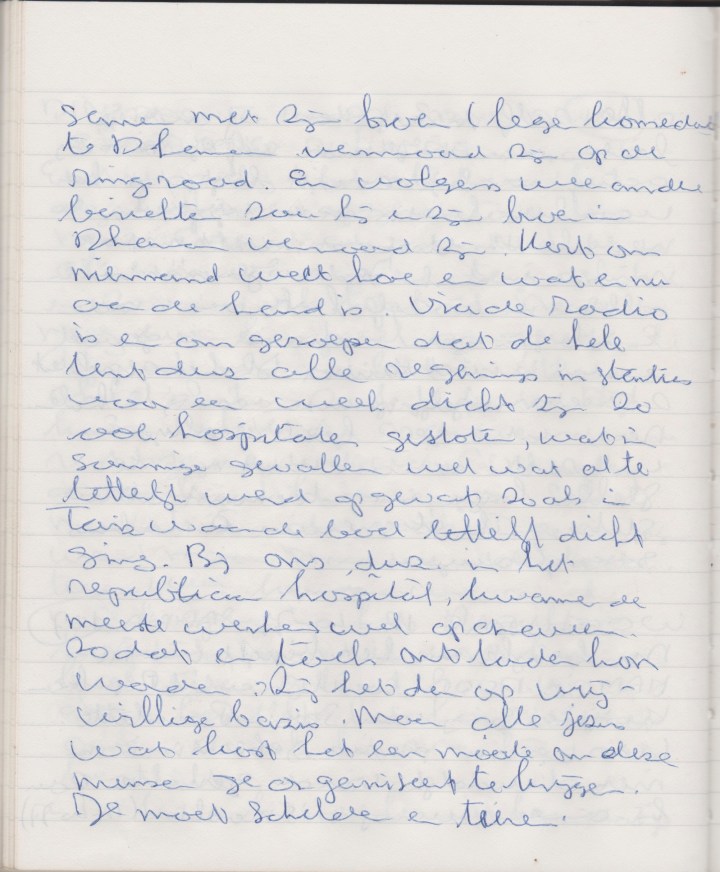 samen met zijn broer (lege komedat
te Dhamar vermoord zijn op de
ringroad. En volgens weer andere
berichten zou hij en zijn broer in
Dhamar vermoord zijn. Kort om
niemand weet hoe en wat er nu
aan de hand is. Via de radio
is er om geroepen dat de hele
tent dus alle regerings instanties
voor een week dicht zijn zo
ook hospitalen gesloten, wat in
sommige gevallen wel wat al te
letterlijk werd opgevat zoals in
Taiz waar de boel letterlijk dicht
ging. Bij ons, dus in het
republican hospital, kwamen de
meeste werkers wel opdraven.
Zodat er toch ontladen kon
worden. Zij het dan op vrij-
willige basis. Maar alle jezus
wat kost het een moeite om deze
mensen georganiseert te krijgen.
Je moet schelden en tieren.